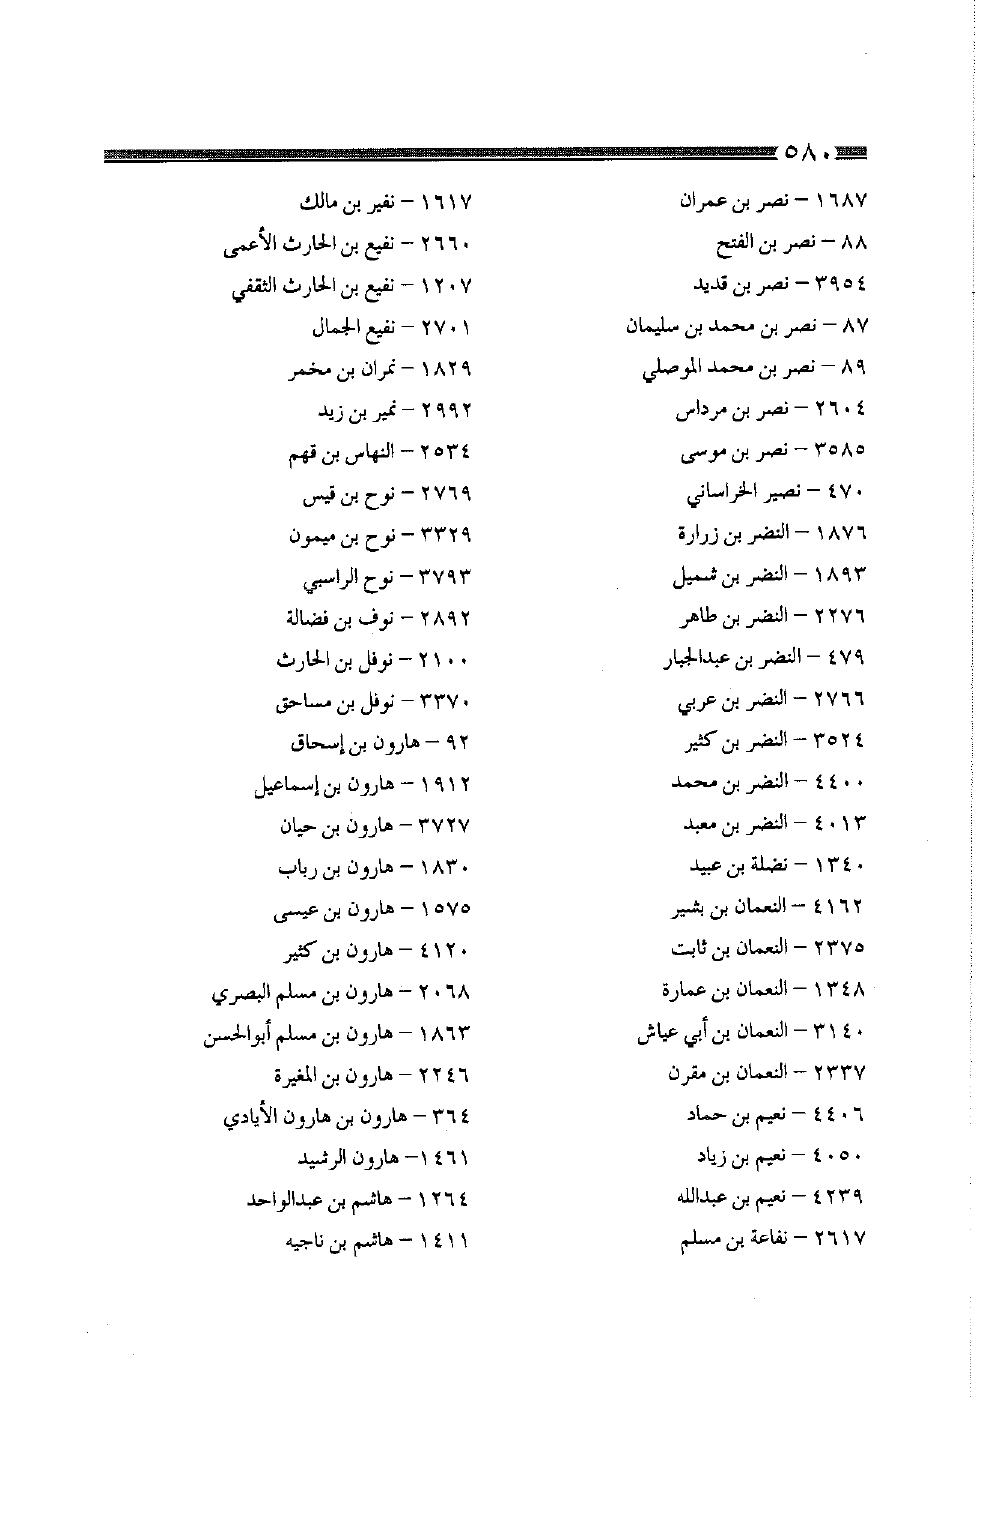 ٥٨٠
١٦٨٧ – نصر بن عمران
٨٨ – نصر بن الفتح
٣٩٥٤ – نصر بن قديد
٨٧ – نصر بن محمد بن سليمان
٨٩ – نصر بن محمد الموصلي
٢٦٠٤ – نصر بن مرداس
٣٥٨٥ – نصر بن موسى
٤٧٠ – نصير الخراساني
١٨٧٦ – النضر بن زرارة
١٨٩٣ – النضر بن شميل
٢٢٧٦ – النضر بن طاهر
٤٧٩ – النضر بن عبدالجبار
٢٧٦٦ – النضر بن عربي
٣٥٢٤ – النضر بن كثير
٤٤٠٠ – النضر بن محمد
٤٠١٣ – النضر بن معبد
١٣٤٠ – نضلة بن عبيد
٤١٦٢ – النعمان بن بشير
٢٣٧٥ – النعمان بن ثابت
١٣٤٨ – النعمان بن عمارة
٣١٤٠ – النعمان بن أبي عياش
٢٣٣٧ – النعمان بن مقرن
٤٤٠٦ – نعيم بن حماد
٤٠٥٠ – نعيم بن زياد
٤٢٣٩ – نعيم بن عبدالله
٢٦١٧ – نفاعة بن مسلم
١٦١٧ – نفير بن مالك
٢٦٦٠ – نفيع بن الحارث الأعمى
١٢٠٧ – نفيع بن الحارث الثقفي
٢٧٠١ – نفيع الجمال
١٨٢٩ – نمران بن مخمر
٢٩٩٢ – نمير بن زيد
٢٥٣٤ – النهاس بن قهم
٢٧٦٩ – نوح بن قيس
٣٣٢٩ – نوح بن ميمون
٣٧٩٣ – نوح الراسبي
٢٨٩٢ – نوف بن فضالة
٢١٠٠ – نوفل بن الحارث
٣٣٧٠ – نوفل بن مساحق
٩٢ – هارون بن إسحاق
١٩١٢ – هارون بن إسماعيل
٣٧٢٧ – هارون بن حيان
١٨٣٠ – هارون بن رباب
١٥٧٥ – هارون بن عيسى
٤١٢٠ – هارون بن كثير
٢٠٦٨ – هارون بن مسلم البصري
١٨٦٣ – هارون بن مسلم أبوالحسن
٢٢٤٦ – هارون بن المغيرة
٣٦٤ – هارون بن هارون الأيادي
١٤٦١ – هارون الرشيد
١٢٦٤ – هاشم بن عبدالواحد
١٤١١ – هاشم بن ناجيه